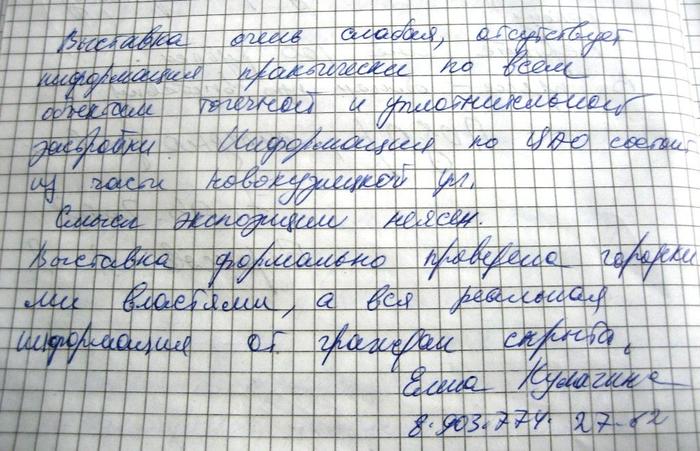 Выставка очень слабая, отсутствует
информация практически по всем
объектам точечной и уплотнительной
застройки. Информация по ЦАО состоит
из части Новокузнецкой ул.
Смысл экспозиции неясен.
Выставка формально проведена городски
ми властями, а вся реальная
информация от граждан скрыта.
Елена Кулагина
8.903.774.27-62